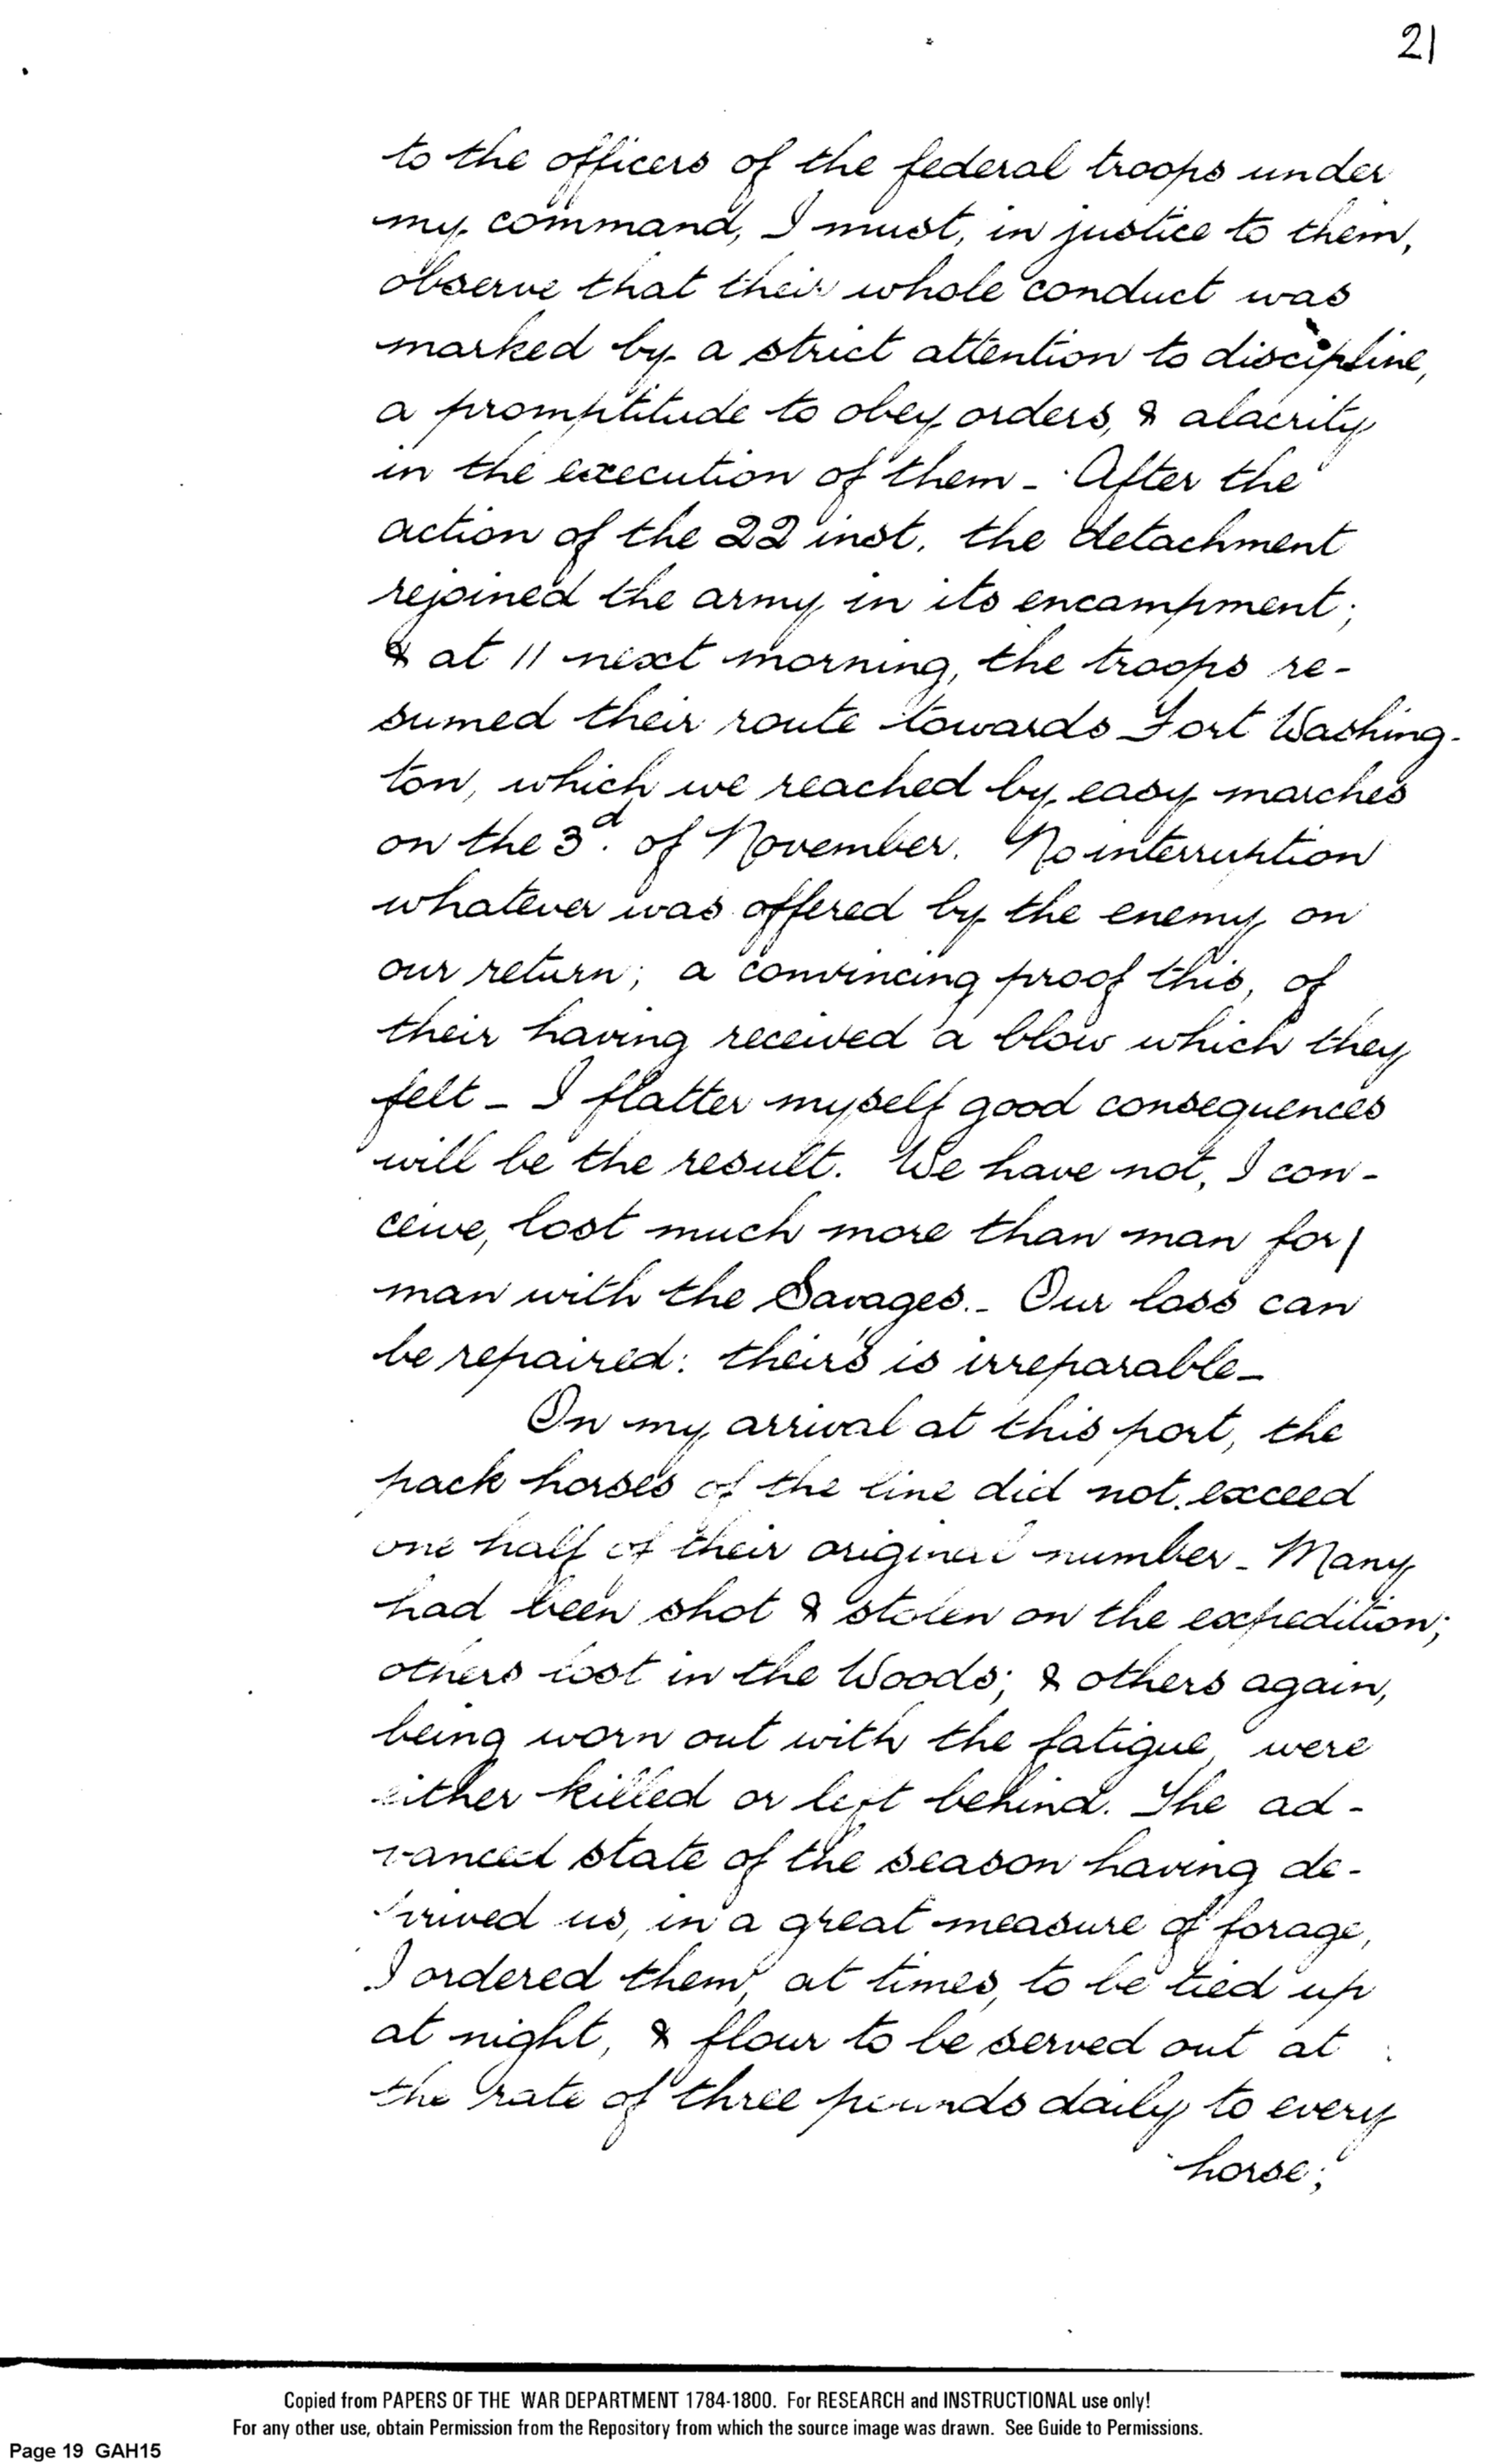 21
to the officers of the federal troops under
my command, I must, in justice to them,
observe that their whole conduct was
marked by a strict attention to discipline,
a promptitude to obey orders, & alacrity
in the execution of them - After the
action of the 22 inst. the detachment
rejoined the army in its encampment;
& at 11 next morning, the troops re-
sumed their route towards Fort Washing-
ton, which we reached by easy marches
on the 3d. of November. No interruption
whatever was offered by the enemy on
our return; a convincing proof this, of
their having received a blow which they
felt - I flatter myself good consequences
will be the result. We have not, I con-
ceive, lost much more than man for
man with the Savages. - Our loss can
be repaired: their's is irreparable -
On my arrival at this port, the
pack horses of the line did not exceed
one half of their original number - Many
had been shot & stolen on the expedition;
others lost in the Woods; & others again,
being worn out with the fatigue, were
either killed or left behind. The ad-
vanced state of the season having de-
prived us, in a great measure of forage,
I ordered them, at times, to be tied up
at night, & flour to be served out at
the rate of three pounds daily to every
horse;
Copied from PAPERS OF THE WAR DEPARTMENT 1784-1800. For RESEARCH and INSTRUCTIONAL use only!
For any other use, obtain Permission from the Repository from which the source image was drawn. See Guide to Permissions.
Page 19 GAH15